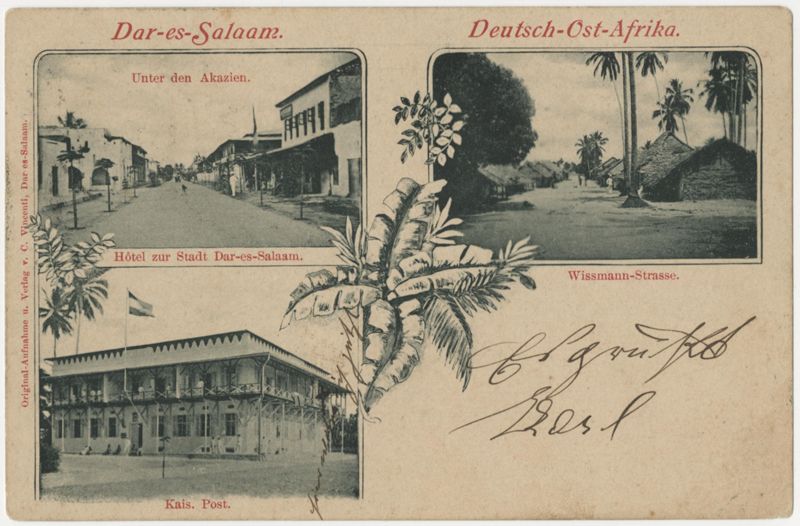 Dar-es-Salaam.
Deutsch-Ost-Afrika.
Unter den Akazien.
Hôtel zur Stadt Dar-es-Salaam.
Wissmann-Strasse.
Kais. Post.
Original-Aufnahme u. Verlag v. C. Vincenti, Dar-es-Salaam.
Es grüßt
Karl